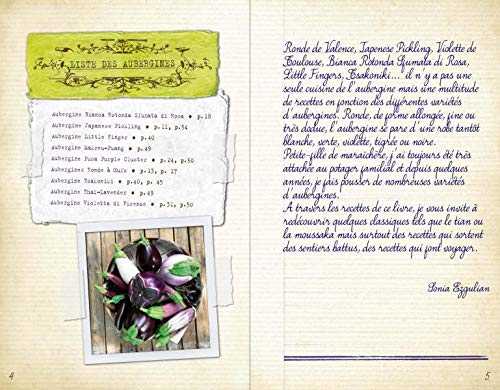 LISTE DES AUBERGINES
Aubergine Bianca Rotonda Sfumata di Rosa • p.18
Aubergine Japanese Pickling • p.11, p.54
Aubergine Little Finger • p.40
Aubergine • p.49
Aubergine Puca Purple Cluster • p.24, p.50
Aubergines Ronde à Œufs • p.13, p. 17
Aubergine Tsakoniki • p.40, p. 45
Aubergine Thai-Lavender • p.43
Aubergine Violetta di Firenze • p.31, p.50
4
Ronde de Valence, Japenese Pickling, Violette de
Toulouse, Bianca Rotonda Sfumata di Rosa,
Little Fingers, Tsakoniki... il n'y a pas une
seule cuisine de l'aubergine mais une multitude
de recettes en fonction des différentes variétés
d'aubergines. Ronde, de forme allongée, fine ou
très dodue, l'aubergine se pare d'une robe tantôt
blanche, verte, violette, tigrée ou noire.
Petite-fille de maraîchère, j'ai toujours été très
attachée au potager familial et depuis quelques
années, je fais pousser de nombreuses variétés
d'aubergines.
A travers les recettes de ce livre, je vous invite à
redécouvrir quelques classiques tels que le tian ou
la moussaka mais surtout des recettes qui sortent
des sentiers battus, des recettes qui font voyager.
Sonia Ezgulian
5